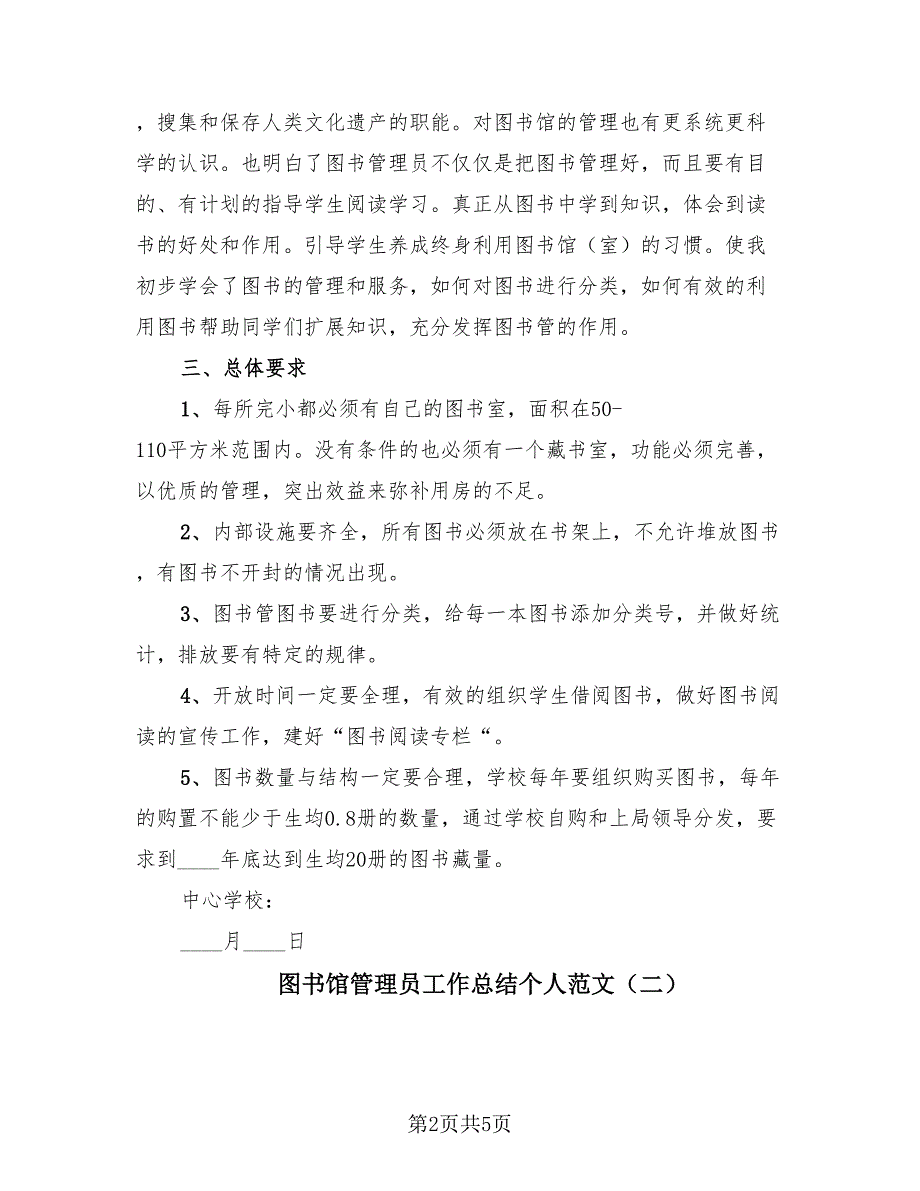 ，搜集和保存人类文化遗产的职能。对图书馆的管理也有更系统更科
学的认识。也明白了图书管理员不仅仅是把图书管理好，而且要有目
的、有计划的指导学生阅读学习。真正从图书中学到知识，体会到读
书的好处和作用。引导学生养成终身利用图书馆（室）的习惯。使我
初步学会了图书的管理和服务，如何对图书进行分类，如何有效的利
用图书帮助同学们扩展知识，充分发挥图书管的作用。
三、总体要求
1、每所完小都必须有自己的图书室，面积在50-
110平方米范围内。没有条件的也必须有一个藏书室，功能必须完善，
以优质的管理，突出效益来弥补用房的不足。
2、内部设施要齐全，所有图书必须放在书架上，不允许堆放图书
，有图书不开封的情况出现。
3、图书管图书要进行分类，给每一本图书添加分类号，并做好统
计，排放要有特定的规律。
4、开放时间一定要全理，有效的组织学生借阅图书，做好图书阅
读的宣传工作，建好“图书阅读专栏“。
5、图书数量与结构一定要合理，学校每年要组织购买图书，每年
的购置不能少于生均0.8册的数量，通过学校自购和上局领导分发，要
求到____年底达到生均20册的图书藏量。
中心学校：
____月____日
图书馆管理员工作总结个人范文（二）
第2页共5页